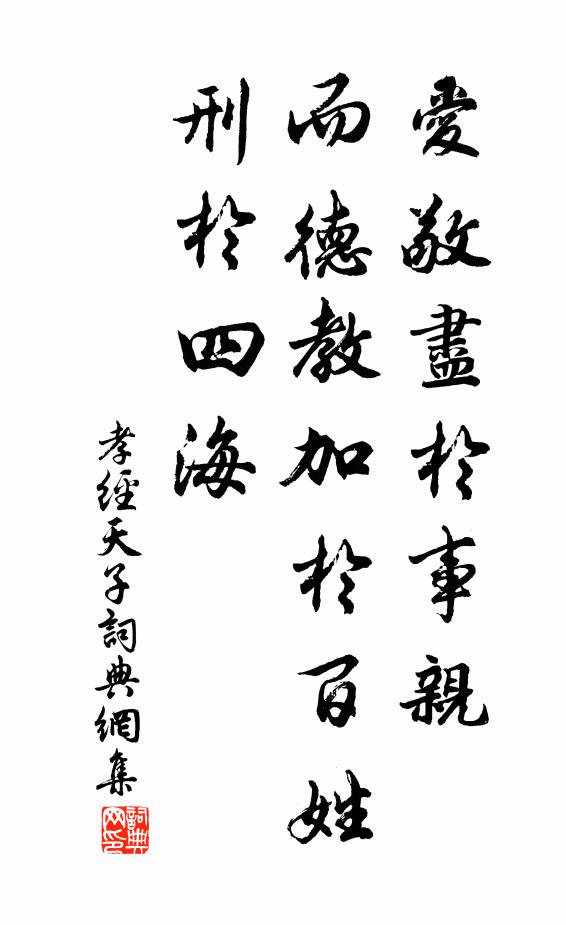 愛敬盡於事親
而德教加於百姓
刑於四海
孝經天子詞典網集
詞典网印